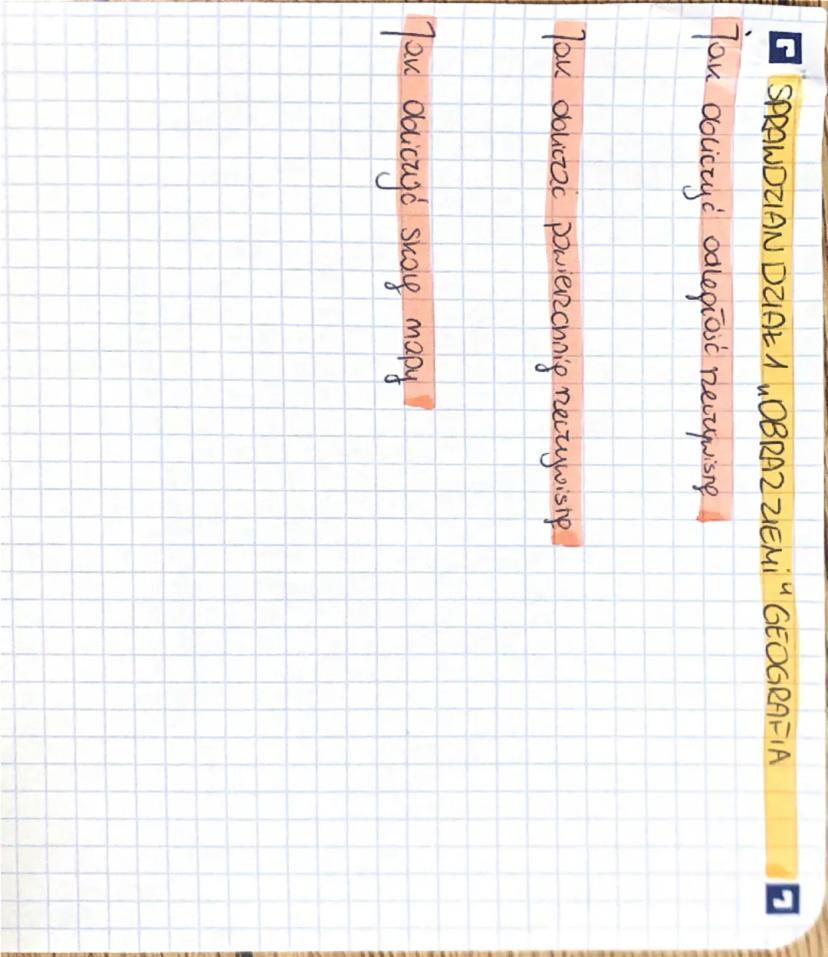 SPRAWDZIAN DZIAŁ 1 „OBRAZ ZIEMI" GEOGRAFIA
Jak obliczyć odległość rzeczywistą
Jak obliczać powierzchnię rzeczywistą
Jak obliczyć skalę mapy